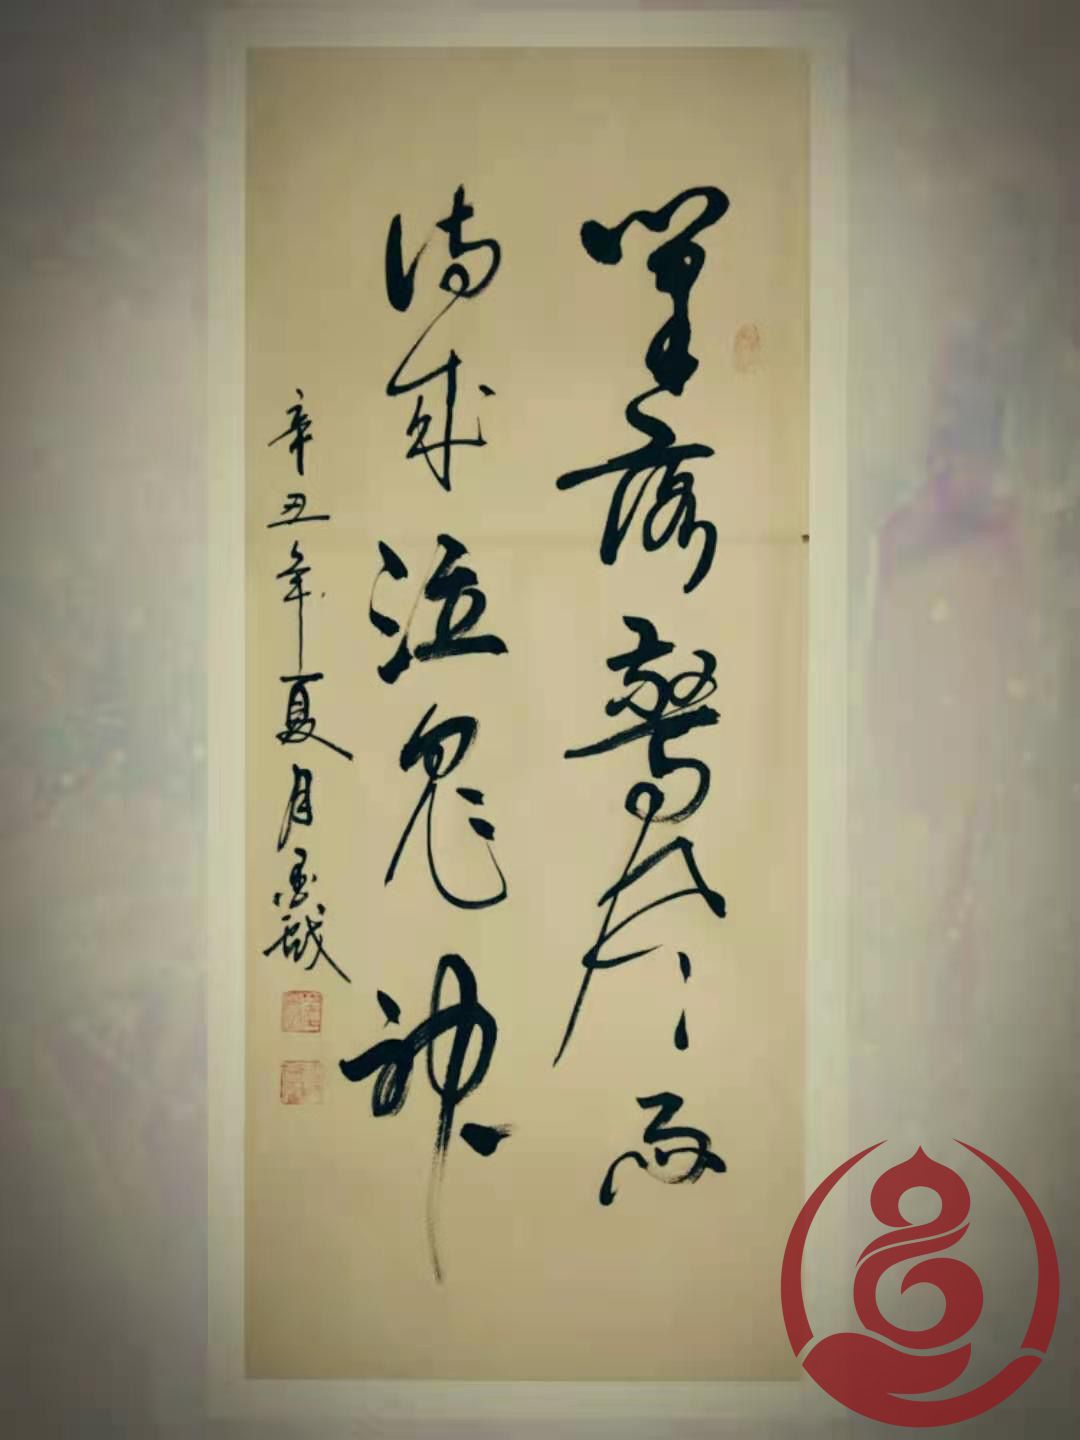 笔落驚风雨
诗成泣鬼神
辛丑年夏月墨戏